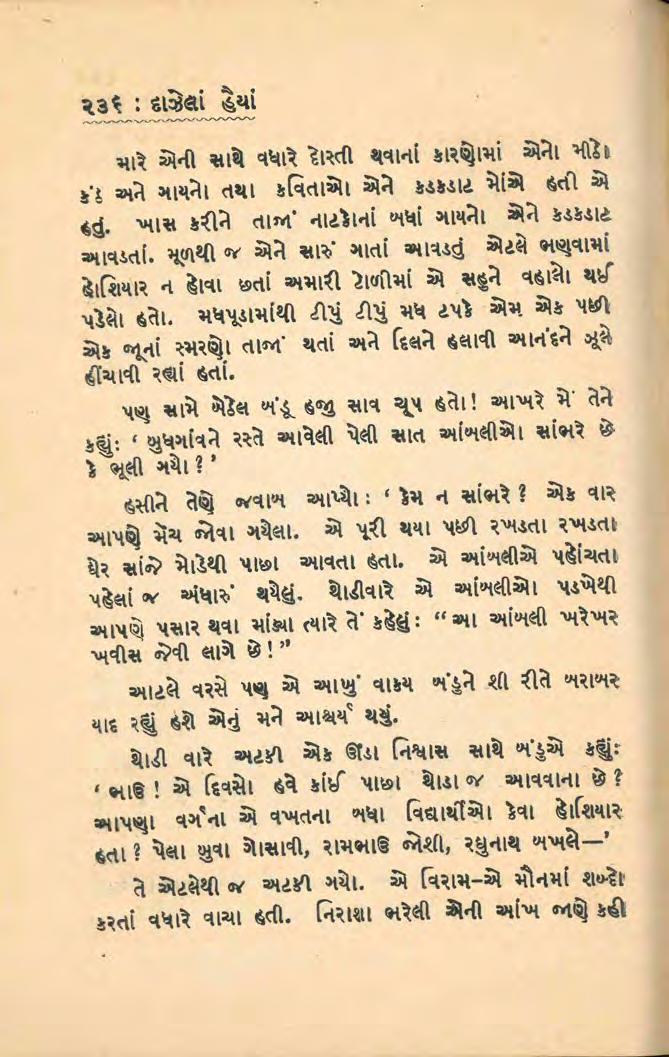 ૨૩૬ : દાઝેલાં હૈયાં
મારે એની સાથે વધારે દોસ્તી થવાનાં કારણોમાં એનો મીઠો
કંઠ અને ગાયનો તથા કવિતાઓ એને કડકડાટ મોંએ હતી એ
હતું. ખાસ કરીને તાજાં નાટકોનાં બધાં ગાયનો એને કડકડાટ
આવડતાં. મૂળથી જ એને સારું ગાતાં આવડતું એટલે ભણવામાં
હોશિયાર ન હોવા છતાં અમારી ટોળીમાં એ સહુને વહાલો થઈ
પડેલો હતો. મધપૂડામાંથી ટીપું ટીપું મધ ટપકે એમ એક પછી
એક જૂનાં સ્મરણો તાજાં થતાં અને દિલને હલાવી આનંદને ઝૂલે
હીંચાવી રહ્યાં હતાં.
પણ સામે બેઠેલ બંડૂ હજી સાવ ચૂપ હતો! આખરે મેં તેને
કહ્યું: ‘ બુધગાંવને રસ્તે આવેલી પેલી સાત આંબલીઓ સાંભરે છે
કે ભૂલી ગયો ? ’
હસીને તેણે જવાબ આપ્યો : ‘ કેમ ન સાંભરે ? એક વાર
આપણે મેંચ જોવા ગયેલા. એ પૂરી થયા પછી રખડતા રખડતા
ઘેર સાંજે મોડેથી પાછા આવતા હતા. એ આંબલીએ પહોંચતા
પહેલાં જ અંધારું થયેલું. થોડીવારે એ આંબલીઓ પડખેથી
આપણે પસાર થવા માંડ્યા ત્યારે તેં કહેલું : “ આ આંબલી ખરેખર
ખવીસ જેવી લાગે છે ! ”
આટલે વરસે પણ એ આખું વાક્ય બંડુને શી રીતે બરાબર
યાદ રહ્યું હશે એનું મને આશ્ચર્ય થયું.
થોડી વારે અટકી એક ઊંડા નિશ્વાસ સાથે બંડુએ કહ્યું:
‘ ભાઉ ! એ દિવસો હવે કાંઈ પાછા થોડા જ આવવાના છે ?
આપણા વર્ગના એ વખતના બધા વિદ્યાર્થીઓ કેવા હોશિયાર
હતા ? પેલા બુવા ગોસાવી, રામભાઉ જોશી, રઘુનાથ બખલે—’
તે એટલેથી જ અટકી ગયો. એ વિરામ–એ મૌનમાં શબ્દો
કરતાં વધારે વાચા હતી. નિરાશા ભરેલી એની આંખ જાણે કહી